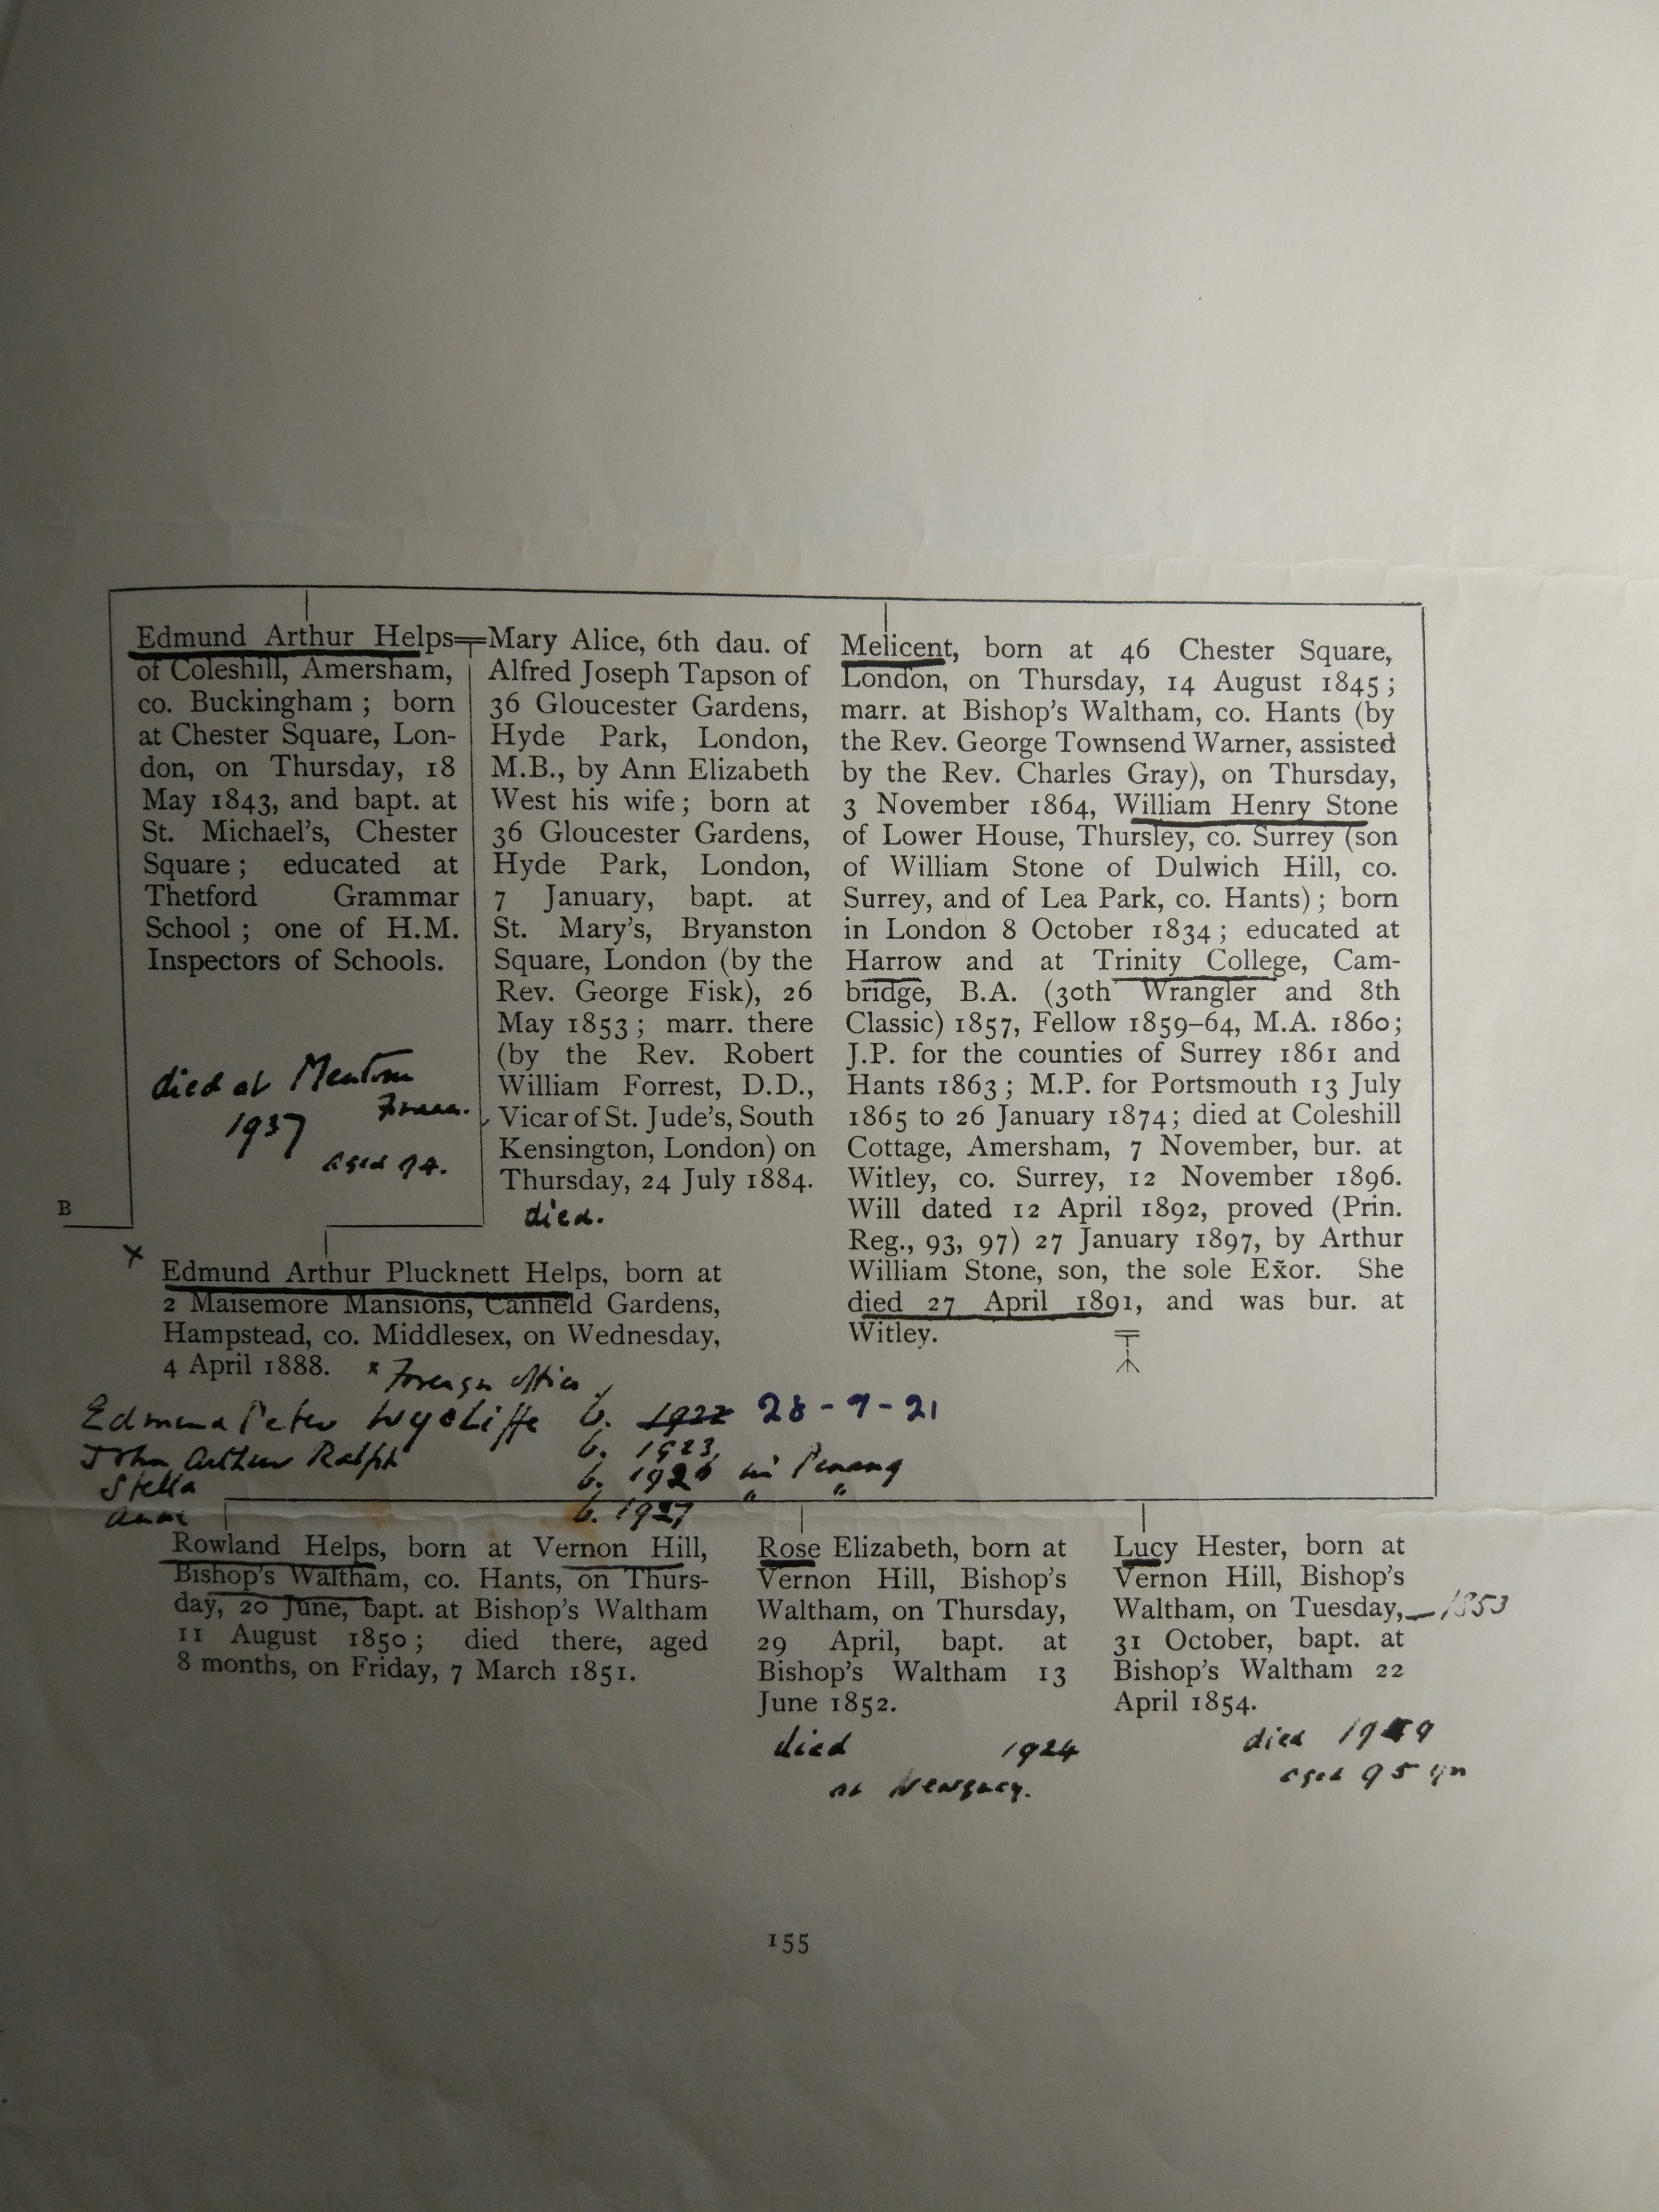 Edmund Arthur Helps
of Coleshill, Amersham,
co. Buckingham ; born
at Chester Square, Lon-
don, on Thursday, 18
May 1843, and bapt. at
St. Michael's, Chester
Square ; educated at
Thetford Grammar
School ; one of H.M.
Inspectors of Schools.
died at Mentone
France.
1937
aged 94.
Mary Alice, 6th dau. of
Alfred Joseph Tapson of
36 Gloucester Gardens,
Hyde Park, London,
M.B., by Ann Elizabeth
West his wife ; born at
36 Gloucester Gardens,
Hyde Park, London,
7 January, bapt. at
St. Mary's, Bryanston
Square, London (by the
Rev. George Fisk), 26
May 1853 ; marr. there
(by the Rev. Robert
William Forrest, D.D.,
Vicar of St. Jude's, South
Kensington, London) on
Thursday, 24 July 1884.
died.
Melicent, born at 46 Chester Square,
London, on Thursday, 14 August 1845 ;
marr. at Bishop's Waltham, co. Hants (by
the Rev. George Townsend Warner, assisted
by the Rev. Charles Gray), on Thursday,
3 November 1864, William Henry Stone
of Lower House, Thursley, co. Surrey (son
of William Stone of Dulwich Hill, co.
Surrey, and of Lea Park, co. Hants) ; born
in London 8 October 1834 ; educated at
Harrow and at Trinity College, Cam-
bridge, B.A. (30th Wrangler and 8th
Classic) 1857, Fellow 1859–64, M.A. 1860;
J.P. for the counties of Surrey 1861 and
Hants 1863 ; M.P. for Portsmouth 13 July
1865 to 26 January 1874; died at Coleshill
Cottage, Amersham, 7 November, bur. at
Witley, co. Surrey, 12 November 1896.
Will dated 12 April 1892, proved (Prin.
Reg., 93, 97) 27 January 1897, by Arthur
William Stone, son, the sole Ex̃or. She
died 27 April 1891, and was bur. at
Witley.
B
x
Edmund Arthur Plucknett Helps, born at
2 Maisemore Mansions, Canfield Gardens,
Hampstead, co. Middlesex, on Wednesday,
4 April 1888. x Foreign Office
Edmund Peter Wycliffe b. 1922 28-9-21
John Arthur Ralph b. 1923,
Stella b. 1926 in Penang
Anne b. 1927 " "
Rowland Helps, born at Vernon Hill,
Bishop's Waltham, co. Hants, on Thurs-
day, 20 June, bapt. at Bishop's Waltham
11 August 1850 ; died there, aged
8 months, on Friday, 7 March 1851.
Rose Elizabeth, born at
Vernon Hill, Bishop's
Waltham, on Thursday,
29 April, bapt. at
Bishop's Waltham 13
June 1852.
died 1924
at Newquay.
Lucy Hester, born at
Vernon Hill, Bishop's
Waltham, on Tuesday, 1853
31 October, bapt. at
Bishop's Waltham 22
April 1854.
died 1949
aged 95 yrs
155